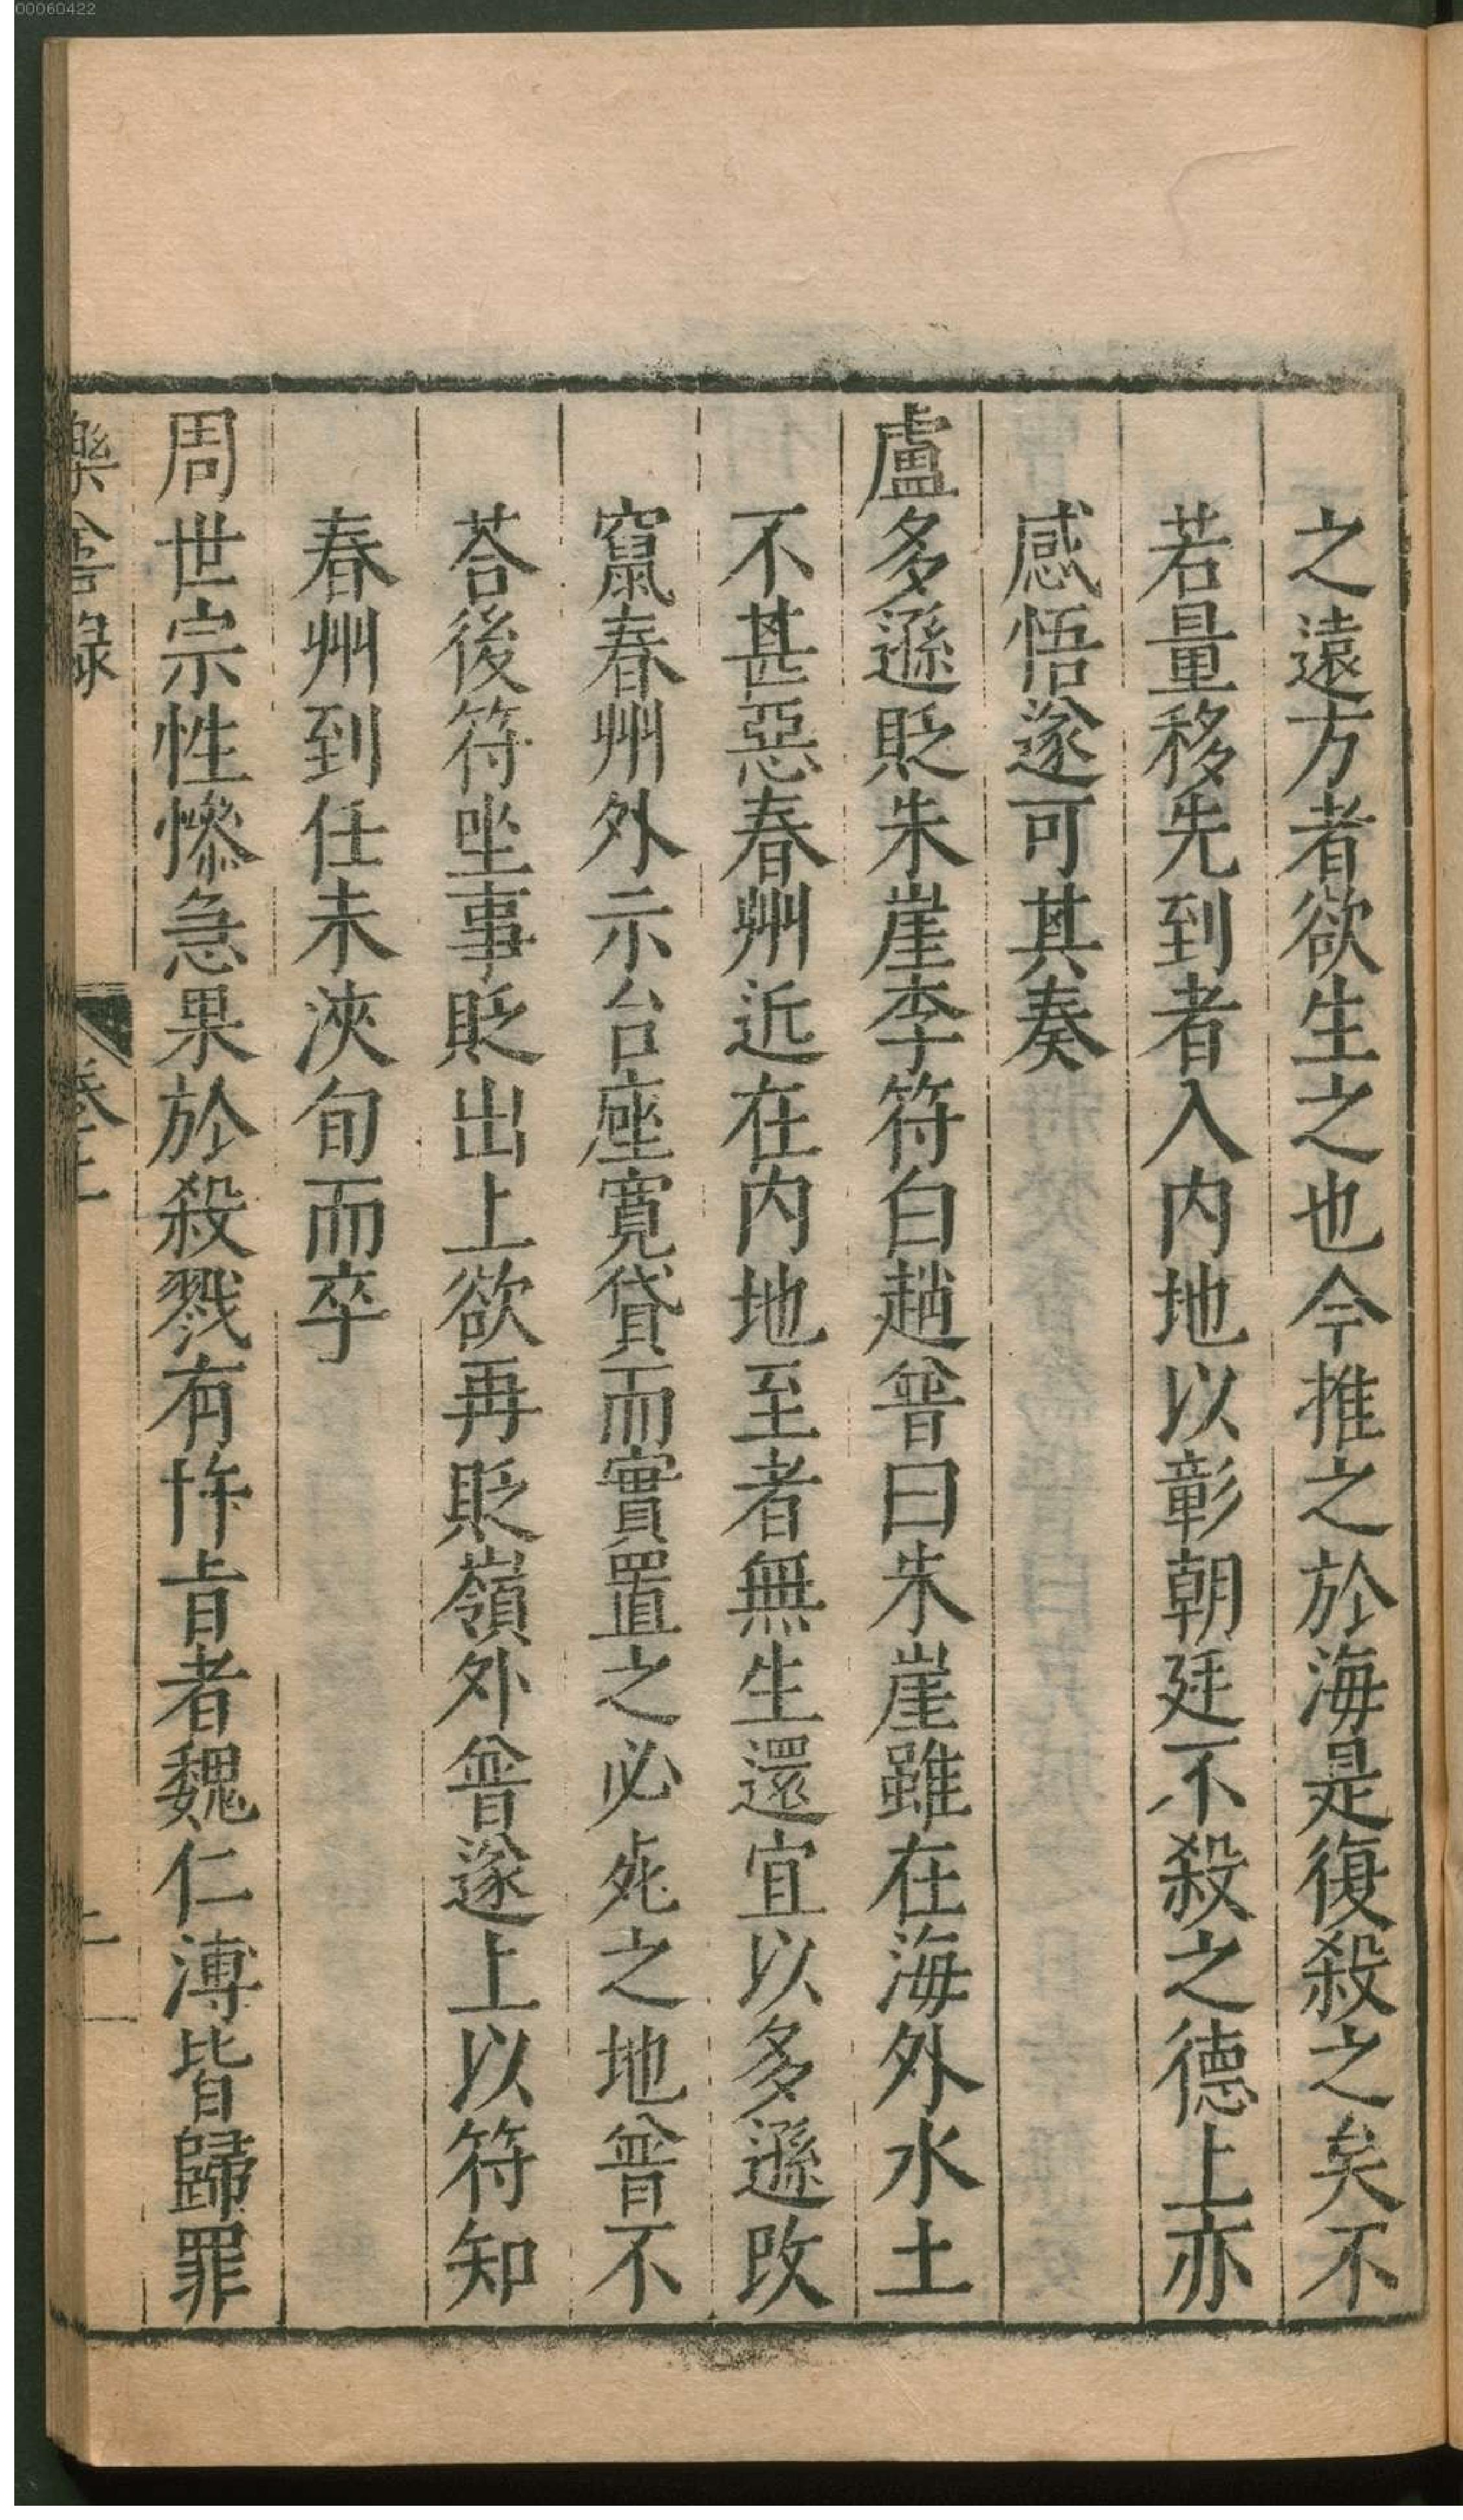 00060422
之遠方者欲生之也今推之於海是復殺之矣不
若量移先到者入内地以彰朝廷不殺之德上亦
感悟遂可其奏
盧多遜貶朱崖李符白趙普曰朱崖雖在海外水土
不甚惡春州近在内地至者無生還宜以多遜改
竄春州外示台座寛貸而實置之必死之地普不
荅後符坐事貶出上欲再貶嶺外普遂上以符知
春州到任未浹旬而卒
周世宗性慘急果於殺戮有忤旨者魏仁溥皆歸罪
樂善録